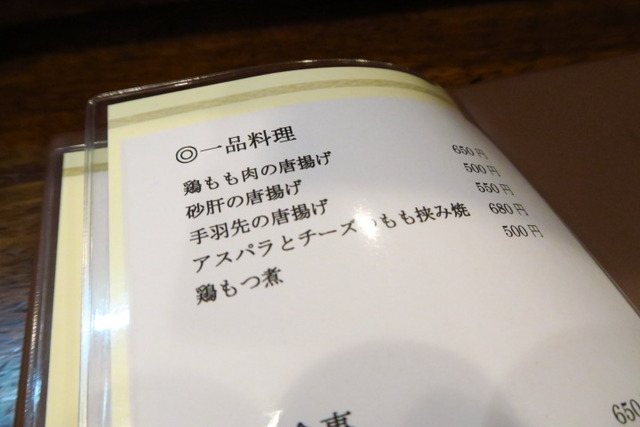 ◎一品料理
鶏もも肉の唐揚げ 650円
砂肝の唐揚げ 500円
手羽先の唐揚げ 550円
アスパラとチーズのもも挟み焼 680円
鶏もつ煮 500円
食事
650